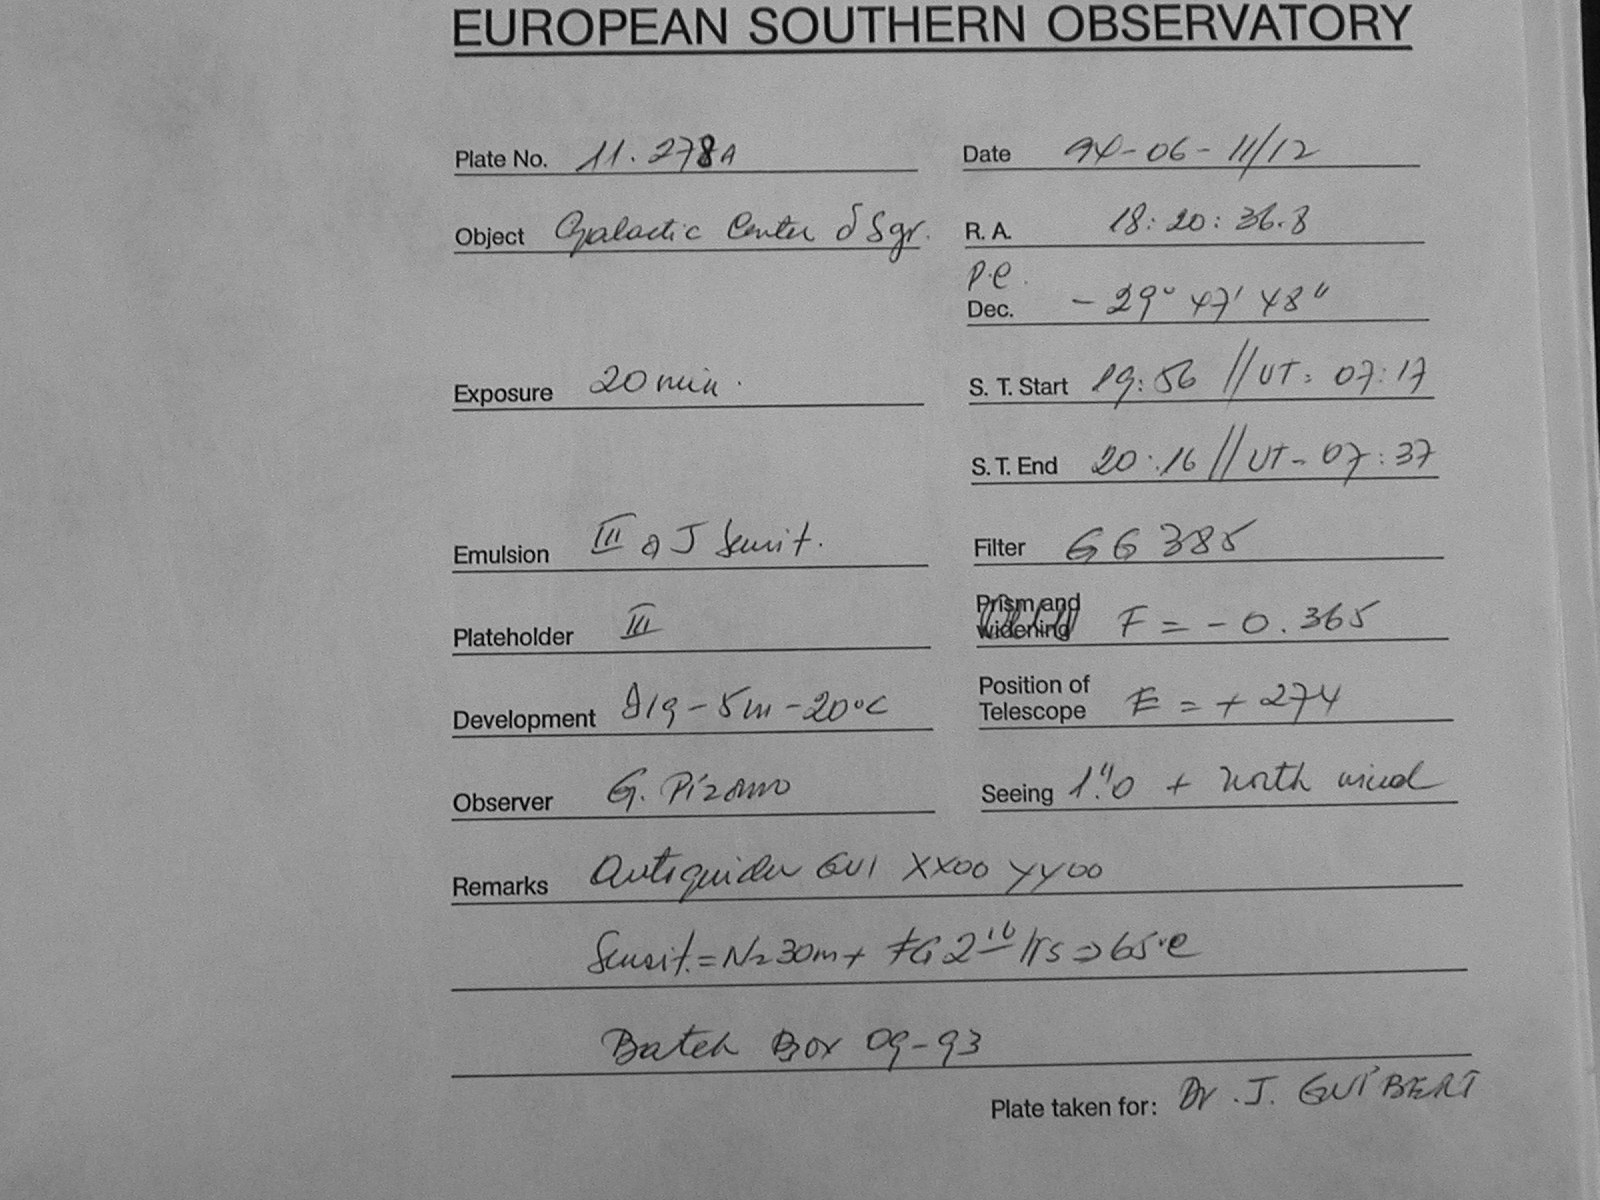 EUROPEAN SOUTHERN OBSERVATORY
Plate No. 11.278A
Date 94-06-11/12
Object Galactic Center δ Sgr.
R. A. 18:20:36.8
p.e.
Dec. -29° 47' 48"
Exposure 20 min.
S. T. Start 19:56 // UT: 07:17
S. T. End 20:16 // UT- 07:37
Emulsion III a J Sensit.
Filter GG 385
Plateholder III
Prism and widening F = -0.365
Development D19-5m-20°C
Position of Telescope E = +274
Observer G. Pizarro
Seeing 1".0 + north wind
Remarks Autoguider GUI XX00 YY00
Sensit.=N2 30m+ FG 2 hrs ⇒ 65°C
Batch Box 09-93
Plate taken for: Dr. J. GUIBERT